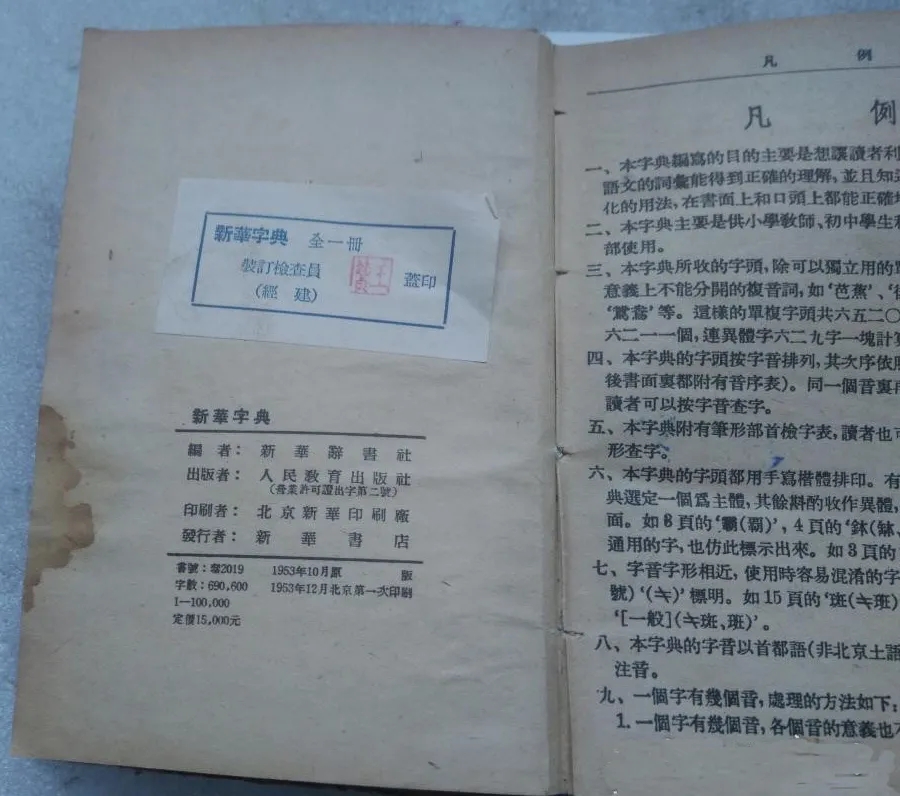 新華字典 全一冊
裝訂檢查員 蓋印
（經 建）
新華字典
編者：新華辭書社
出版者：人民教育出版社
（營業許可證出字第二號）
印刷者：北京新華印刷廠
發行者：新華書店
書號：辭2019 1953年10月原版
字數：690,600 1953年12月北京第一次印刷
1—100,000
定價15,000元
凡 例
凡 例
一、本字典編寫的目的主要是想讓讀者利
語文的詞彙能得到正確的理解，並且知
化的用法，在書面上和口頭上都能正確
二、本字典主要是供小學敎師、初中學生
部使用。
三、本字典所收的字頭，除可以獨立用的
意義上不能分開的複音詞，如‘芭蕉’、
‘鴛鴦’等。這樣的單複字頭共六五二〇
六二一一個，連異體字六二九字一塊計
四、本字典的字頭按字音排列，其次序依
後書面裏都附有音序表）。同一個音裏
讀者可以按字音查字。
五、本字典附有筆形部首檢字表，讀者也
形查字。
六、本字典的字頭都用手寫楷體排印。有
典選定一個爲主體，其餘斟酌收作異體，
面。如8頁的‘霸（覇）’，4頁的‘鉢（缽、
通用的字，也仿此標示出來。如3頁的
七、字音字形相近，使用時容易混淆的字
號）‘（≒）’標明。如15頁的‘斑（≒班）
‘［一般］（≒斑、班）’。
八、本字典的字音以首都語（非北京土語
注音。
九、一個字有幾個音，處理的方法如下：
1. 一個字有幾個音，各個音的意義也